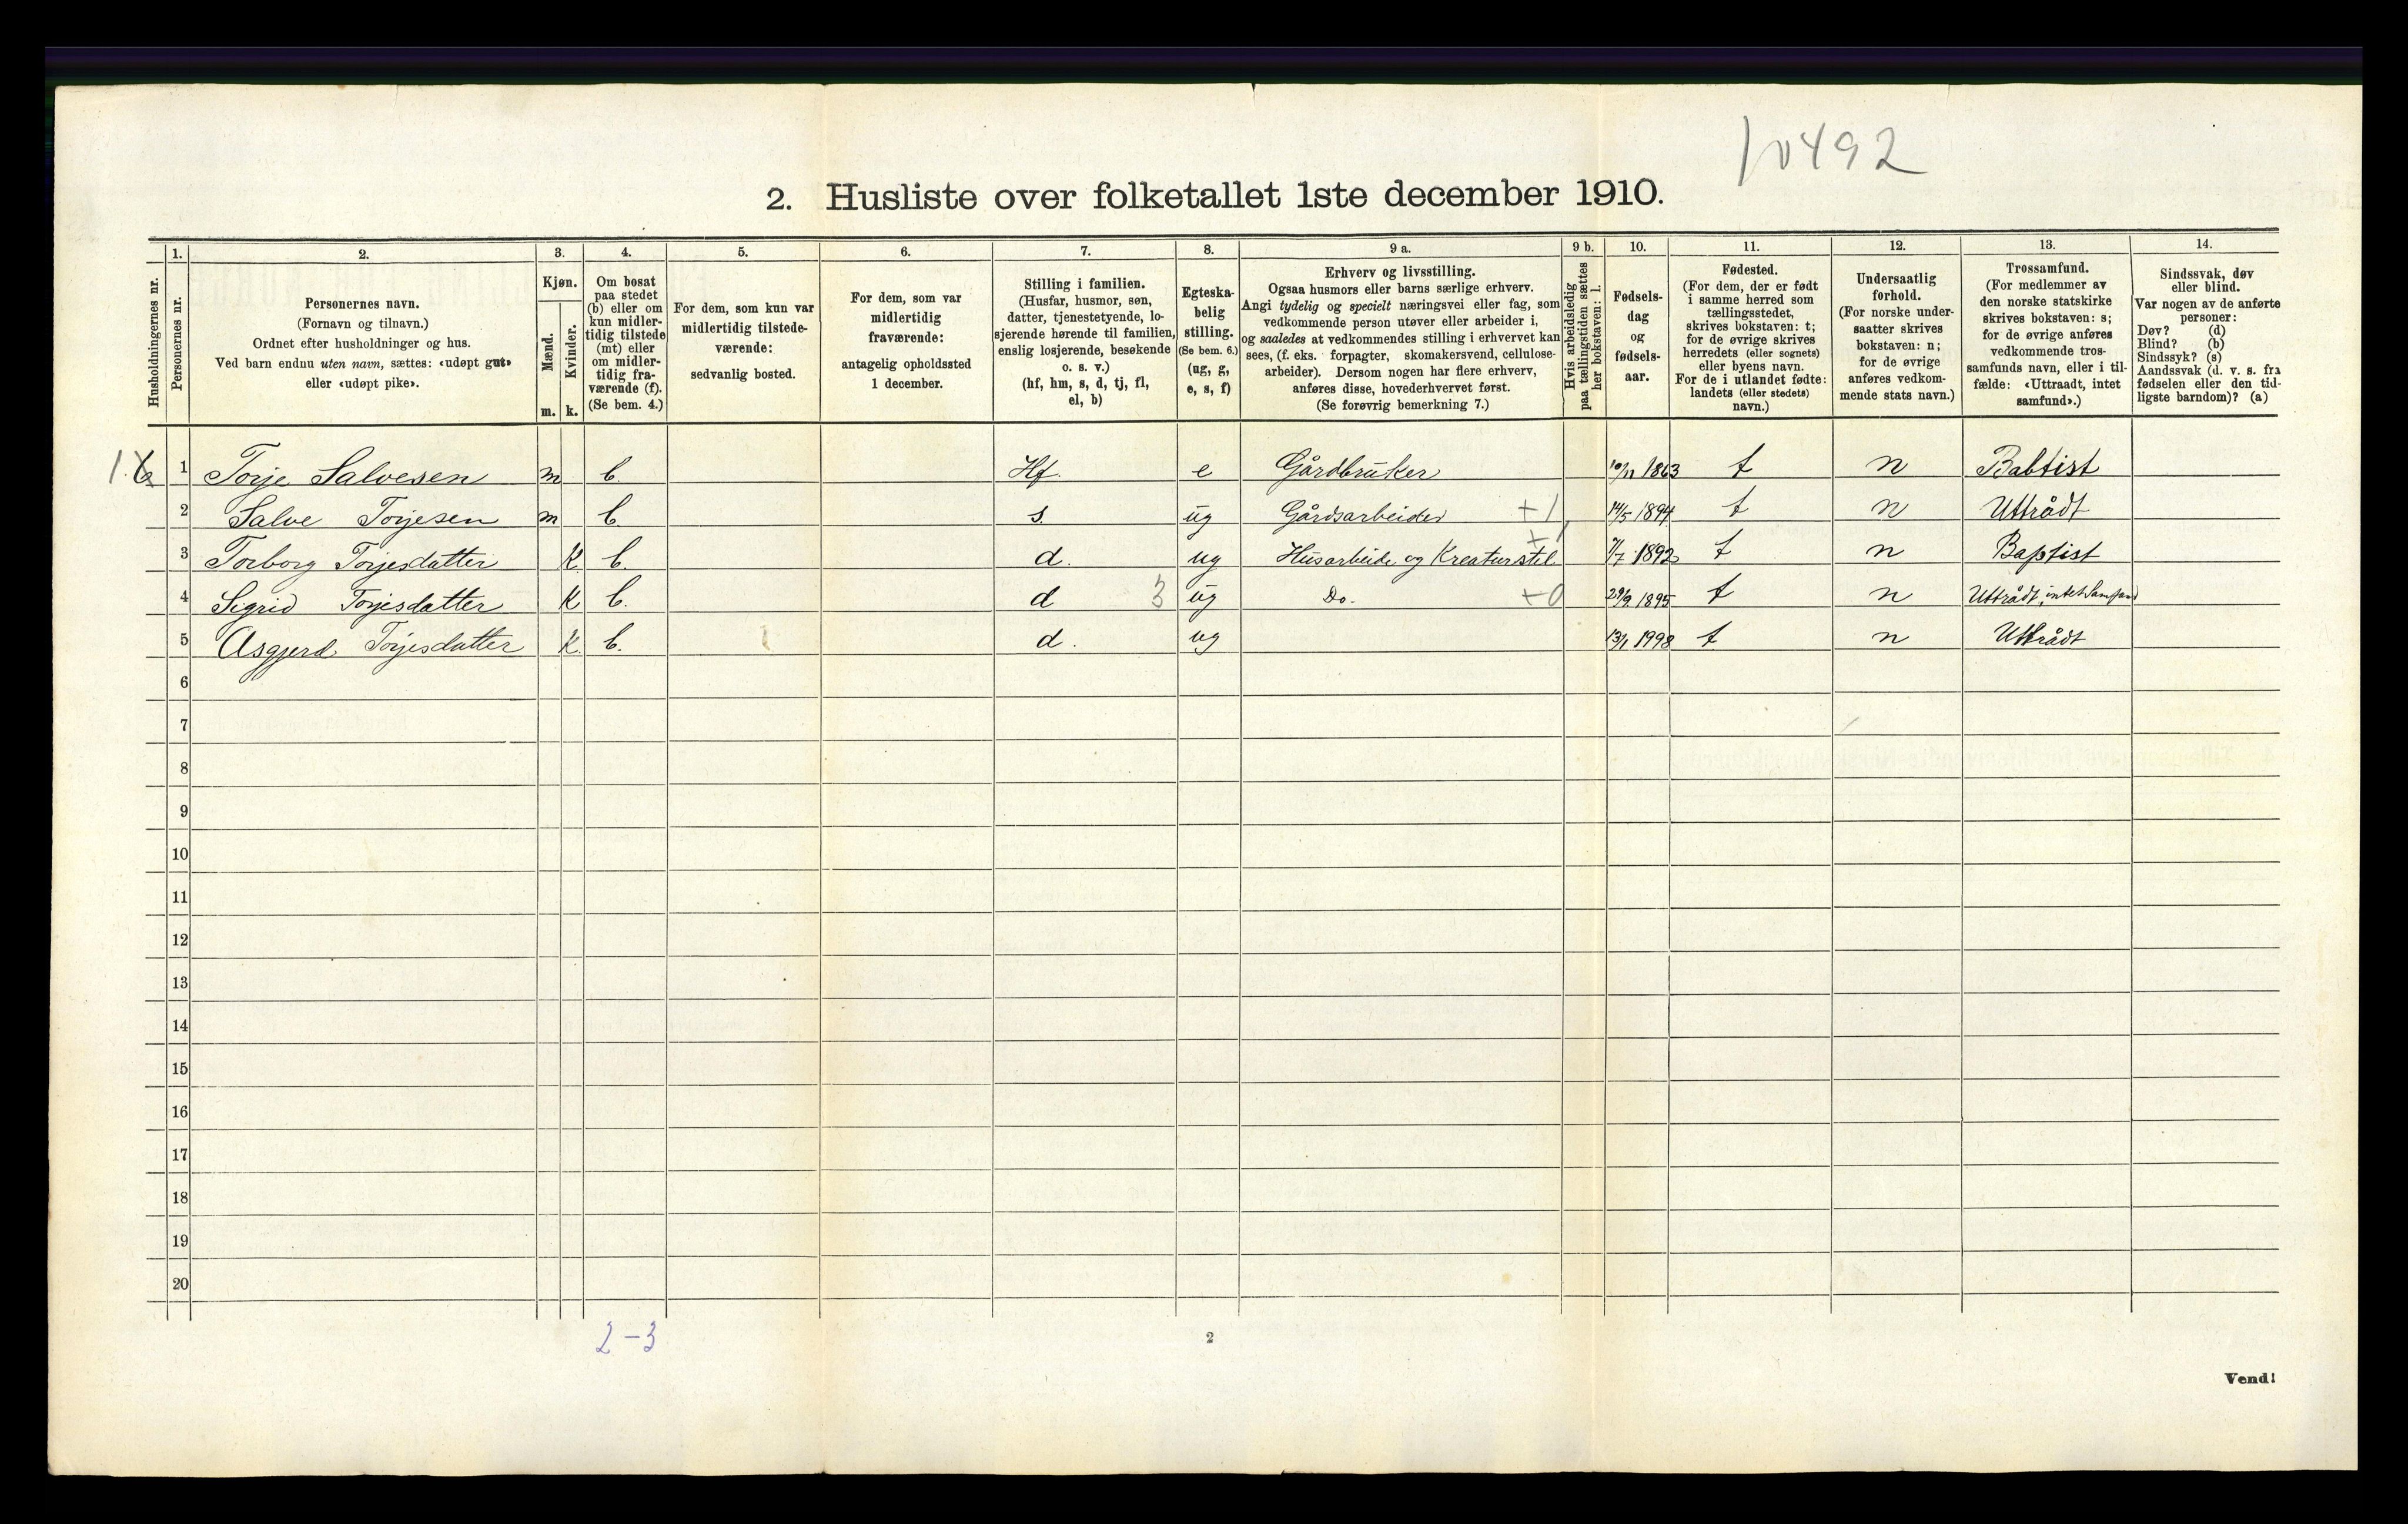 10492
2. Husliste over folketallet 1ste december 1910.
1. 2. 3. 4. 5. 6. 7. 8. 9 a. 9 b. 10. 11. 12. 13. 14.
Husholdningernes nr.
Personernes nr.
Personernes navn.
(Fornavn og tilnavn.)
Ordnet efter husholdninger og hus.
Ved barn endnu uten navn, sættes: «udøpt gut»
eller «udøpt pike».
Kjøn.
Mænd.
Kvinder.
m. k.
Om bosat
paa stedet
(b) eller om
kun midler-
tidig tilstede
(mt) eller
om midler-
tidig fra-
værende (f).
(Se bem. 4.)
For dem, som kun var
midlertidig tilstede-
værende:
sedvanlig bosted.
For dem, som var
midlertidig
fraværende:
antagelig opholdssted
1 december.
Stilling i familien.
(Husfar, husmor, søn,
datter, tjenestetyende, lo-
sjerende hørende til familien,
enslig losjerende, besøkende
o. s. v.)
(hf, hm, s, d, tj, fl,
el, b)
Egteska-
belig
stilling.
(Se bem. 6.)
(ug, g,
e, s, f)
Erhverv og livsstilling.
Ogsaa husmors eller barns særlige erhverv.
Angi tydelig og specielt næringsvei eller fag, som
vedkommende person utøver eller arbeider i,
og saaledes at vedkommendes stilling i erhvervet kan
sees, (f. eks. forpagter, skomakersvend, cellulose-
arbeider). Dersom nogen har flere erhverv,
anføres disse, hovederhvervet først.
(Se forøvrig bemerkning 7.)
Hvis arbeidsledig
paa tællingstiden sættes
her bokstaven: l.
Fødsels-
dag
og
fødsels-
aar.
Fødested.
(For dem, der er født
i samme herred som
tællingsstedet,
skrives bokstaven: t;
for de øvrige skrives
herredets (eller sognets)
eller byens navn.
For de i utlandet fødte:
landets (eller stedets)
navn.)
Undersaatlig
forhold.
(For norske under-
saatter skrives
bokstaven: n;
for de øvrige
anføres vedkom-
mende stats navn.)
Trossamfund.
(For medlemmer av
den norske statskirke
skrives bokstaven: s;
for de øvrige anføres
vedkommende tros-
samfunds navn, eller i til-
fælde: «Uttraadt, intet
samfund».)
Sindssvak, døv
eller blind.
Var nogen av de anførte
personer:
Døv? (d)
Blind? (b)
Sindssyk? (s)
Aandssvak (d. v. s. fra
fødselen eller den tid-
ligste barndom)? (a)
1. 1 Torje Salvesen m b. Hf. e Gårdbruker 10/11 1863 t n Babtist
2 Salve Torjesen m b. s. ug Gårdsarbeider +1 14/5 1894 t n Uttrådt
3 Torborg Torjesdatter k b. d. ug Husarbeide og Kreaturstel +1 7/7 1892 t n Baptist
4 Sigrid Torjesdatter k b. d 3 ug Do. +0 29/9 1895 t n Uttrådt, intet Samfund
5 Asgjerd Torjesdatter k b. d. ug 13/1 1998 t n Uttrådt
6
7
8
9
10
11
12
13
14
15
16
17
18
19
20
2-3
2
Vend!